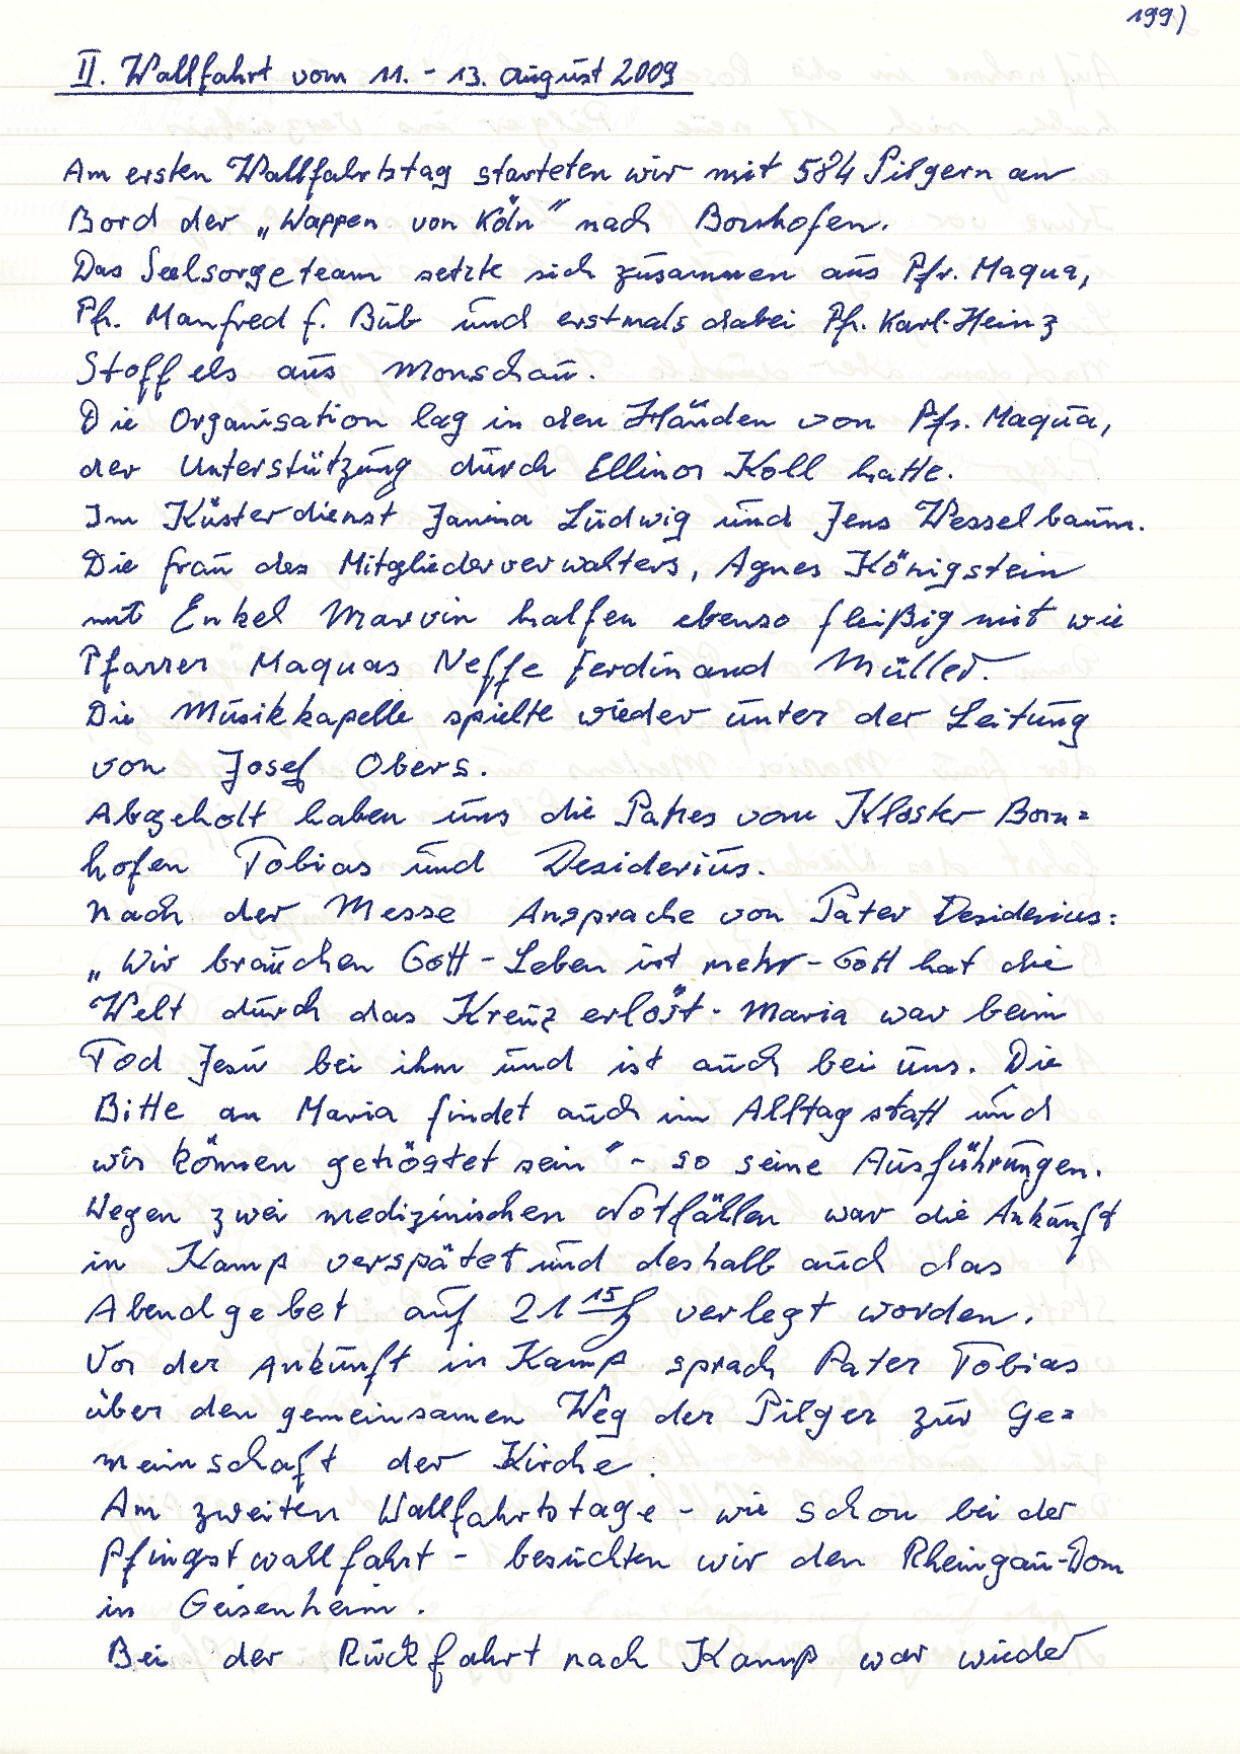 199)
II. Wallfahrt vom 11. - 13. August 2009
Am ersten Wallfahrtstag starteten wir mit 584 Pilgern an
Bord der „Wappen von Köln" nach Bornhofen.
Das Seelsorgeteam setzte sich zusammen aus Pfr. Maqua,
Pfr. Manfred f. Büb und erstmals dabei Pfr. Karl-Heinz
Stoffels aus Monschau.
Die Organisation lag in den Händen von Pfr. Maqua,
der Unterstützung durch Ellinor Koll hatte.
Im Küsterdienst Janina Ludwig und Jens Wesselbaum.
Die Frau des Mitgliederverwalters, Agnes Königstein
mit Enkel Marvin halfen ebenso fleißig mit wie
Pfarrer Maquas Neffe Ferdinand Müller.
Die Musikkapelle spielte wieder unter der Leitung
von Josef Obers.
Abgeholt haben uns die Patres vom Kloster Born=
hofen Tobias und Desiderius.
Nach der Messe Ansprache von Pater Desiderius:
„Wir brauchen Gott - Leben ist mehr - Gott hat die
Welt durch das Kreuz erlöst. Maria war beim
Tod Jesu bei ihm und ist auch bei uns. Die
Bitte an Maria findet auch im Alltag statt und
wir können getröstet sein" - so seine Ausführungen.
Wegen zwei medizinischen Notfällen war die Ankunft
in Kamp verspätet und deshalb auch das
Abendgebet auf 21 15 h verlegt worden.
Vor der Ankunft in Kamp sprach Pater Tobias
über den gemeinsamen Weg der Pilger zur Ge=
meinschaft der Kirche.
Am zweiten Wallfahrtstage - wie schon bei der
Pfingstwallfahrt - besuchten wir den Rheingau-Dom
in Geisenheim.
Bei der Rückfahrt nach Kamp war wieder